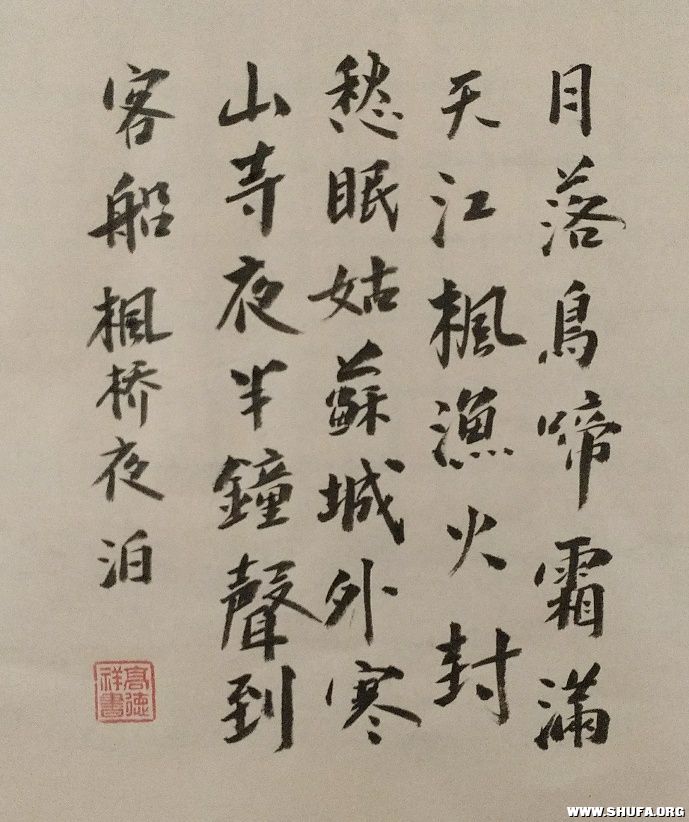 月落烏啼霜滿
天江楓漁火封
愁眠姑蘇城外寒
山寺夜半鐘聲到
客船楓桥夜泊
高德祥書
WWW.SHUFA.ORG